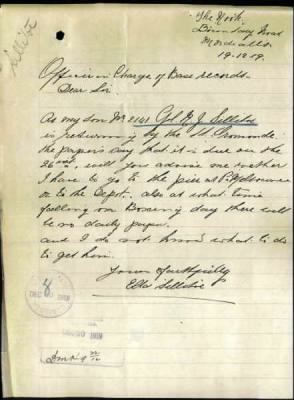 Sillitoe
The Nook,
Road
Mordialloc
19-12-19.
Officer in Charge of Base records.
Dear Sir.
As my son No 2141 Cpl. R J Sillitoe
is returning by the St. Ormonde.
the papers say that it is due on the
26th inst, will you advise me wether
I have to go to the pier at Pt Melbourne
or to the Dept. also at what time
falling on Boxing day there will
be no daily paper.
and I do not know what to do
to get him.
Yours Faithfully
Ella Sillitoe
8
DEC 1919
DEC 20 1919